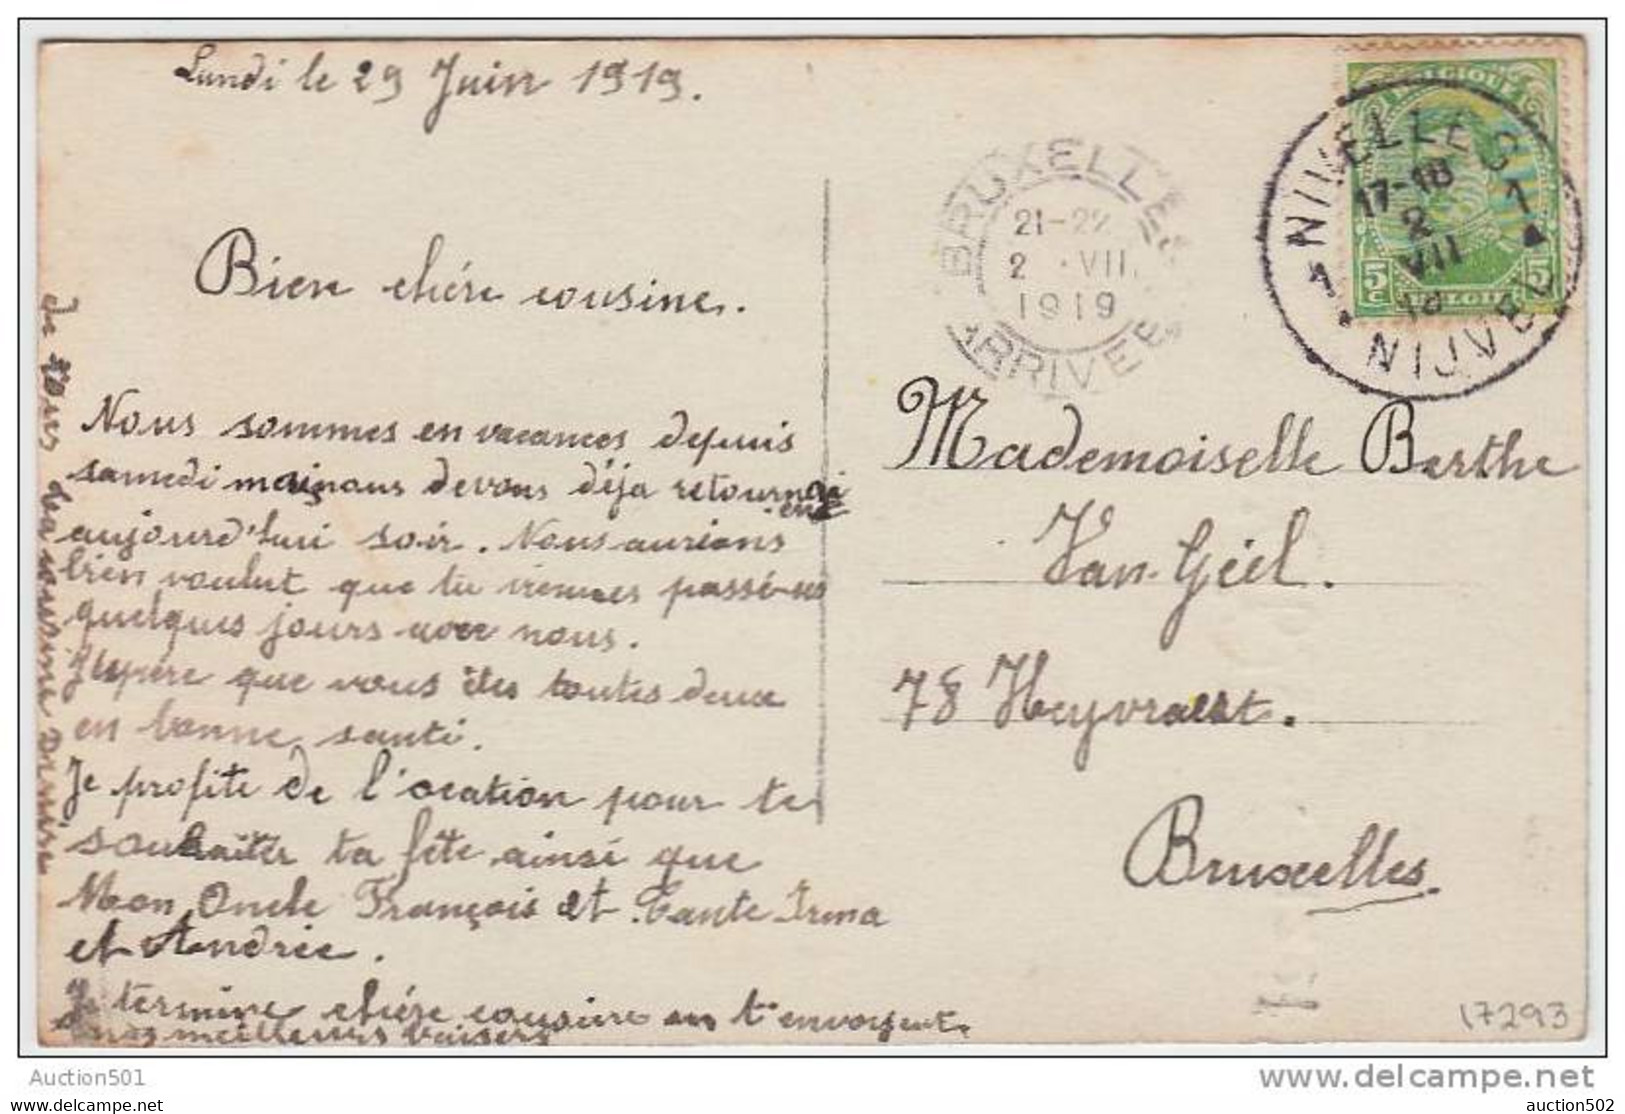 Lundi le 29 Juin 1919.
Bien chére cousine.
Nous sommes en vacances depuis
samedi mais nous devons déja retourner
aujourd'hui soir. Nous aurions
bien voulut que tu viennes passé-us
quelques jours avec nous.
J'espére que vous êtes toutes deux
en bonne santé.
Je profite de l'ocation pour te
souhaiter ta fête ainsi que
Mon Oncle François et Tante Irma
et Andrée.
Je termine chére cousine en t'envoyent
nos meilleurs baisers
de tous ta cousine
BRUXELLES
21-22
2 VII
1919
ARRIVEE
NIVELLES
17-18
2
VII
1 1
NIJVEL
BELGIQUE
5c 5c
BELGIE
Mademoiselle Berthe
Van-Geel.
78 Heyvraert.
Bruxelles.
17293
Auction501
www.delcampe.net
auction502